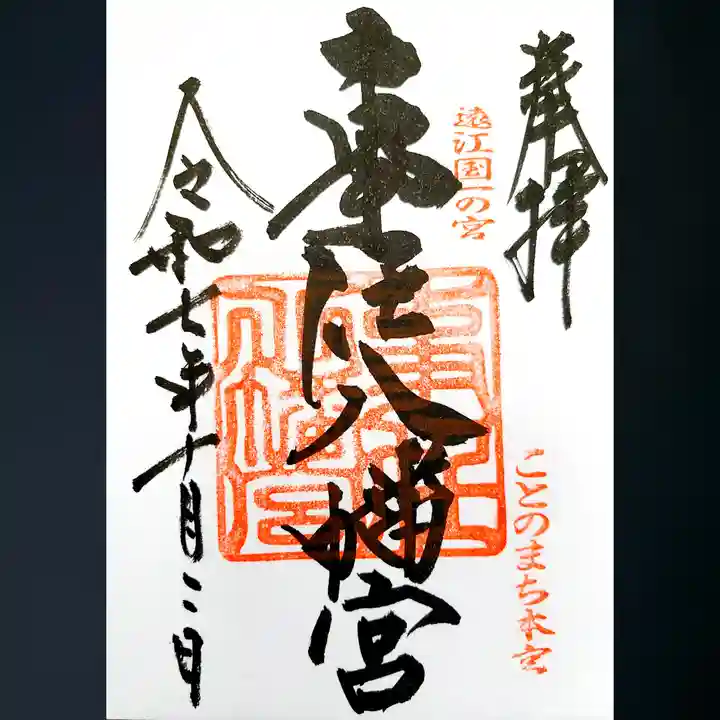 奉拝
遠江国一の宮
ことのまち本宮
事任八幡宮
事任八幡宮
令和七年十月二日